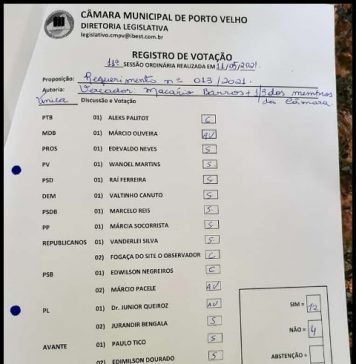 CÂMARA MUNICIPAL DE PORTO VELHO
DIRETORIA LEGISLATIVA
legislativo.cmpv@ibest.com.br
REGISTRO DE VOTAÇÃO
11ª SESSÃO ORDINÁRIA REALIZADA EM 11/05/2021
Proposição: Requerimento nº 013/2021.
Autoria: Vereador Macário Barros + 1/3 dos membros
da Câmara.
Única Discussão e Votação
PTB 01) ALEKS PALITOT C
MDB 01) MÁRCIO OLIVEIRA AU
PROS 01) EDEVALDO NEVES S
PV 01) WANOEL MARTINS S
PSD 01) RAÍ FERREIRA S
DEM 01) VALTINHO CANUTO S
PSDB 01) MARCELO REIS S
PP 01) MÁRCIA SOCORRISTA S
REPUBLICANOS 01) VANDERLEI SILVA S
02) FOGAÇA DO SITE O OBSERVADOR C
PSB 01) EDWILSON NEGREIROS C
02) MÁRCIO PACELE AU
PL 01) Dr. JUNIOR QUEIROZ AU
02) JURANDIR BENGALA S
AVANTE 01) PAULO TICO S
02) EDIMILSON DOURADO S
SIM = 12
NÃO = 4
ABSTENÇÃO =